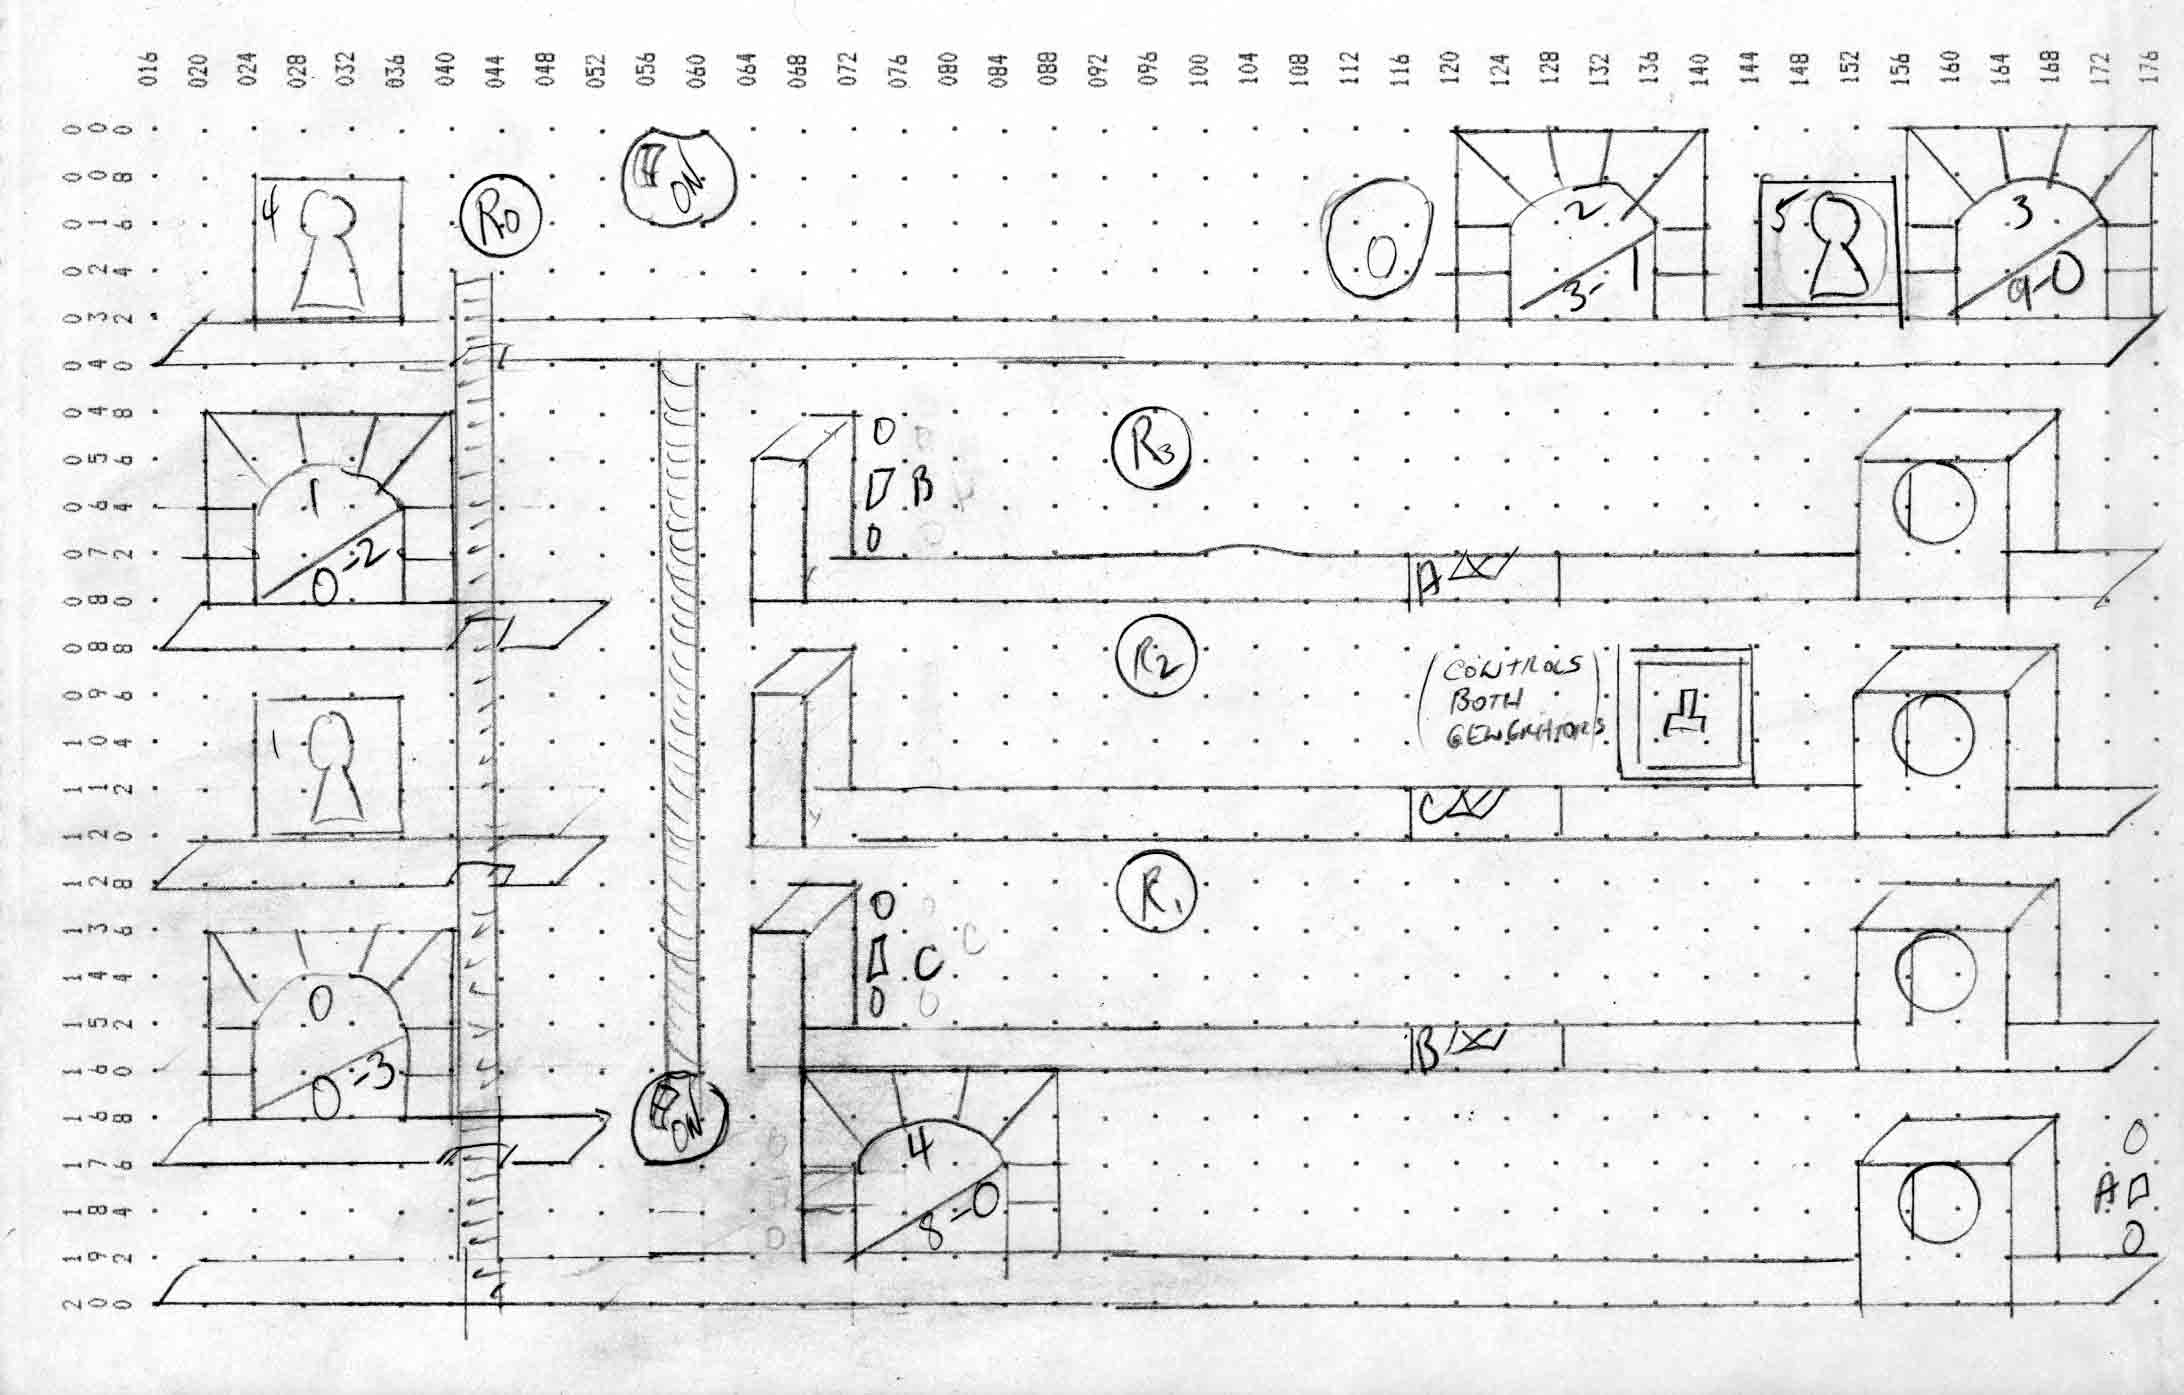 016 020 024 028 032 036 040 044 048 052 056 060 064 068 072 076 080 084 088 092 096 100 104 108 112 116 120 124 128 132 136 140 144 148 152 156 160 164 168 172 176
000
008
016
024
032
040
048
056
064
072
080
088
096
104
112
120
128
136
144
152
160
168
176
184
192
200
4
R0
ON
0
2
3-1
5
3
9-0
1
0-2
0
B
0
R3
A
1
R2
(CONTROLS
BOTH
GENERATORS)
C
0
0-3
0
C
0
R1
B
ON
4
8-0
0
A
0